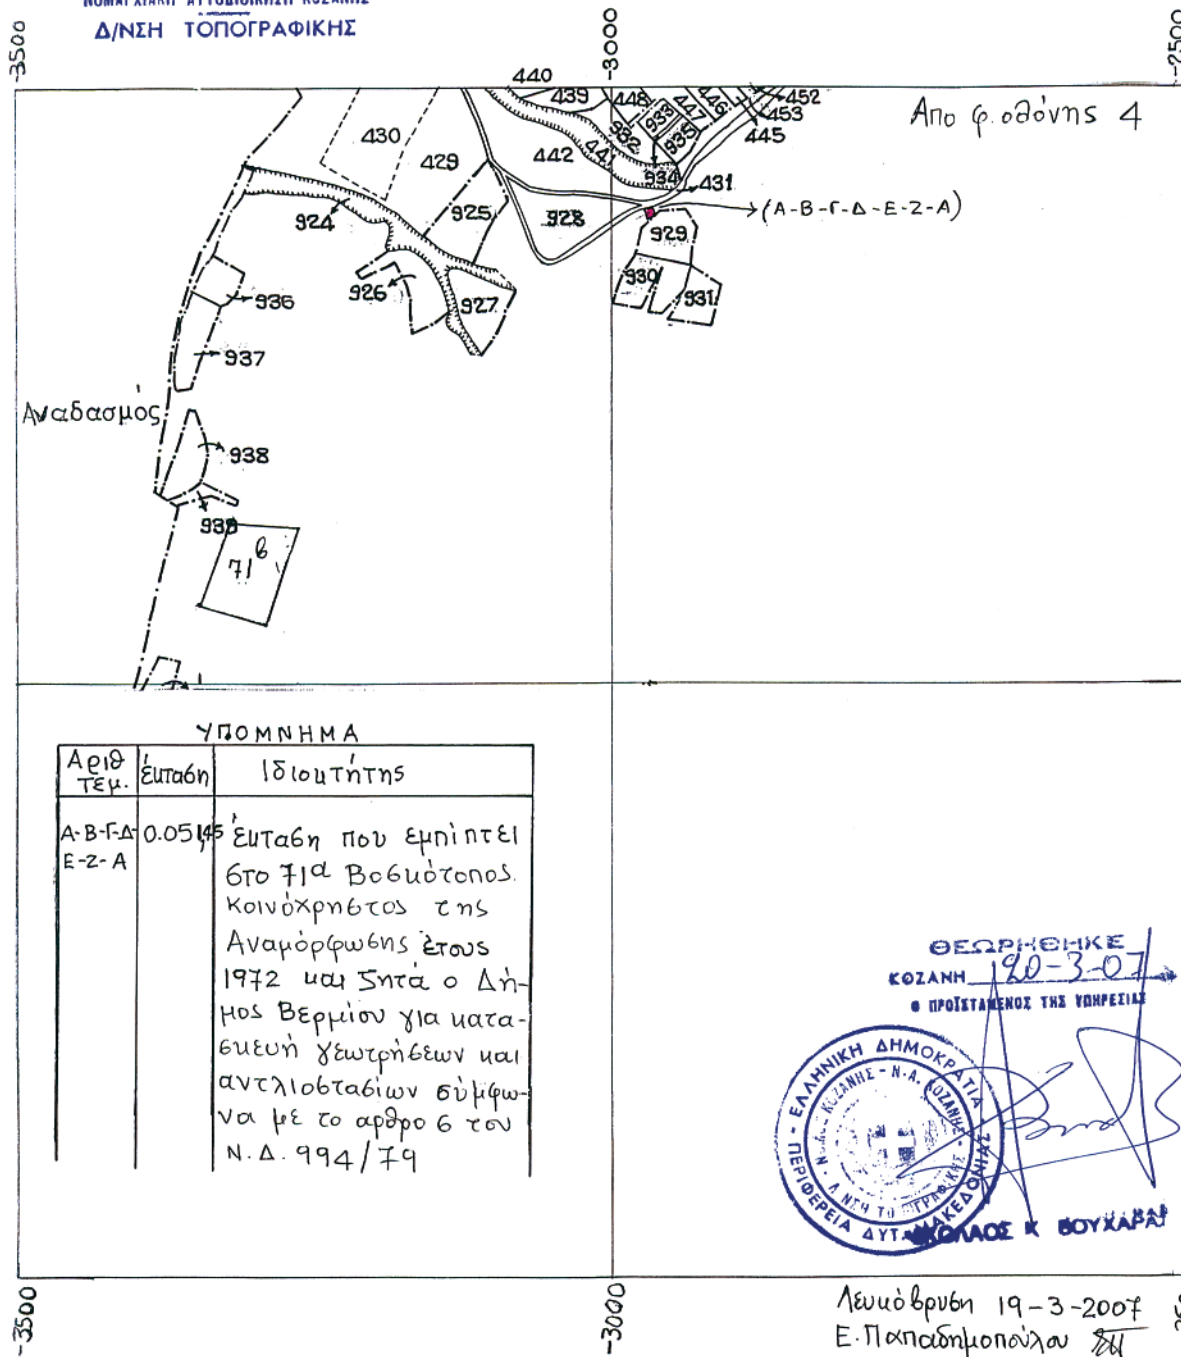 ΝΟΜΑΡΧΙΑΚΗ ΑΥΤΟΔΙΟΙΚΗΣΗ ΚΟΖΑΝΗΣ
Δ/ΝΣΗ ΤΟΠΟΓΡΑΦΙΚΗΣ
-3500
-3000
-2500
Απο φ. οθόνης 4
440
439
448
447
446
452
453
445
430
429
442
441
932
933
935
934
431
(Α-Β-Γ-Δ-Ε-Ζ-Α)
924
925
928
929
926
927
930
931
936
937
Αναδασμός
938
939
71β
ΥΠΟΜΝΗΜΑ
Αριθ τεμ. έκταση Ιδιοκτήτης
Α-Β-Γ-Δ- 0.051,45 έκταση που εμπίπτει
Ε-Ζ-Α
στο 71α Βοσκότοπος
Κοινόχρηστος της
Αναμόρφωσης έτους
1972 και ζητά ο Δή-
μος Βερμίου για κατα-
σκευή γεωτρήσεων και
αντλιοστασίων σύμφω-
να με το αρθρο 6 του
Ν.Δ. 994/79
ΘΕΩΡΗΘΗΚΕ
ΚΟΖΑΝΗ 20-3-07
Ο ΠΡΟΪΣΤΑΜΕΝΟΣ ΤΗΣ ΥΠΗΡΕΣΙΑΣ
ΕΛΛΗΝΙΚΗ ΔΗΜΟΚΡΑΤΙΑ
ΠΕΡΙΦΕΡΕΙΑ ΔΥΤ. ΜΑΚΕΔΟΝΙΑΣ
Ν.Α. ΚΟΖΑΝΗΣ
ΝΙΚΟΛΑΟΣ Κ ΒΟΥΧΑΡΑΣ
-3500
-3000
Λευκόβρυση 19-3-2007
Ε. Παπαδημοπούλου